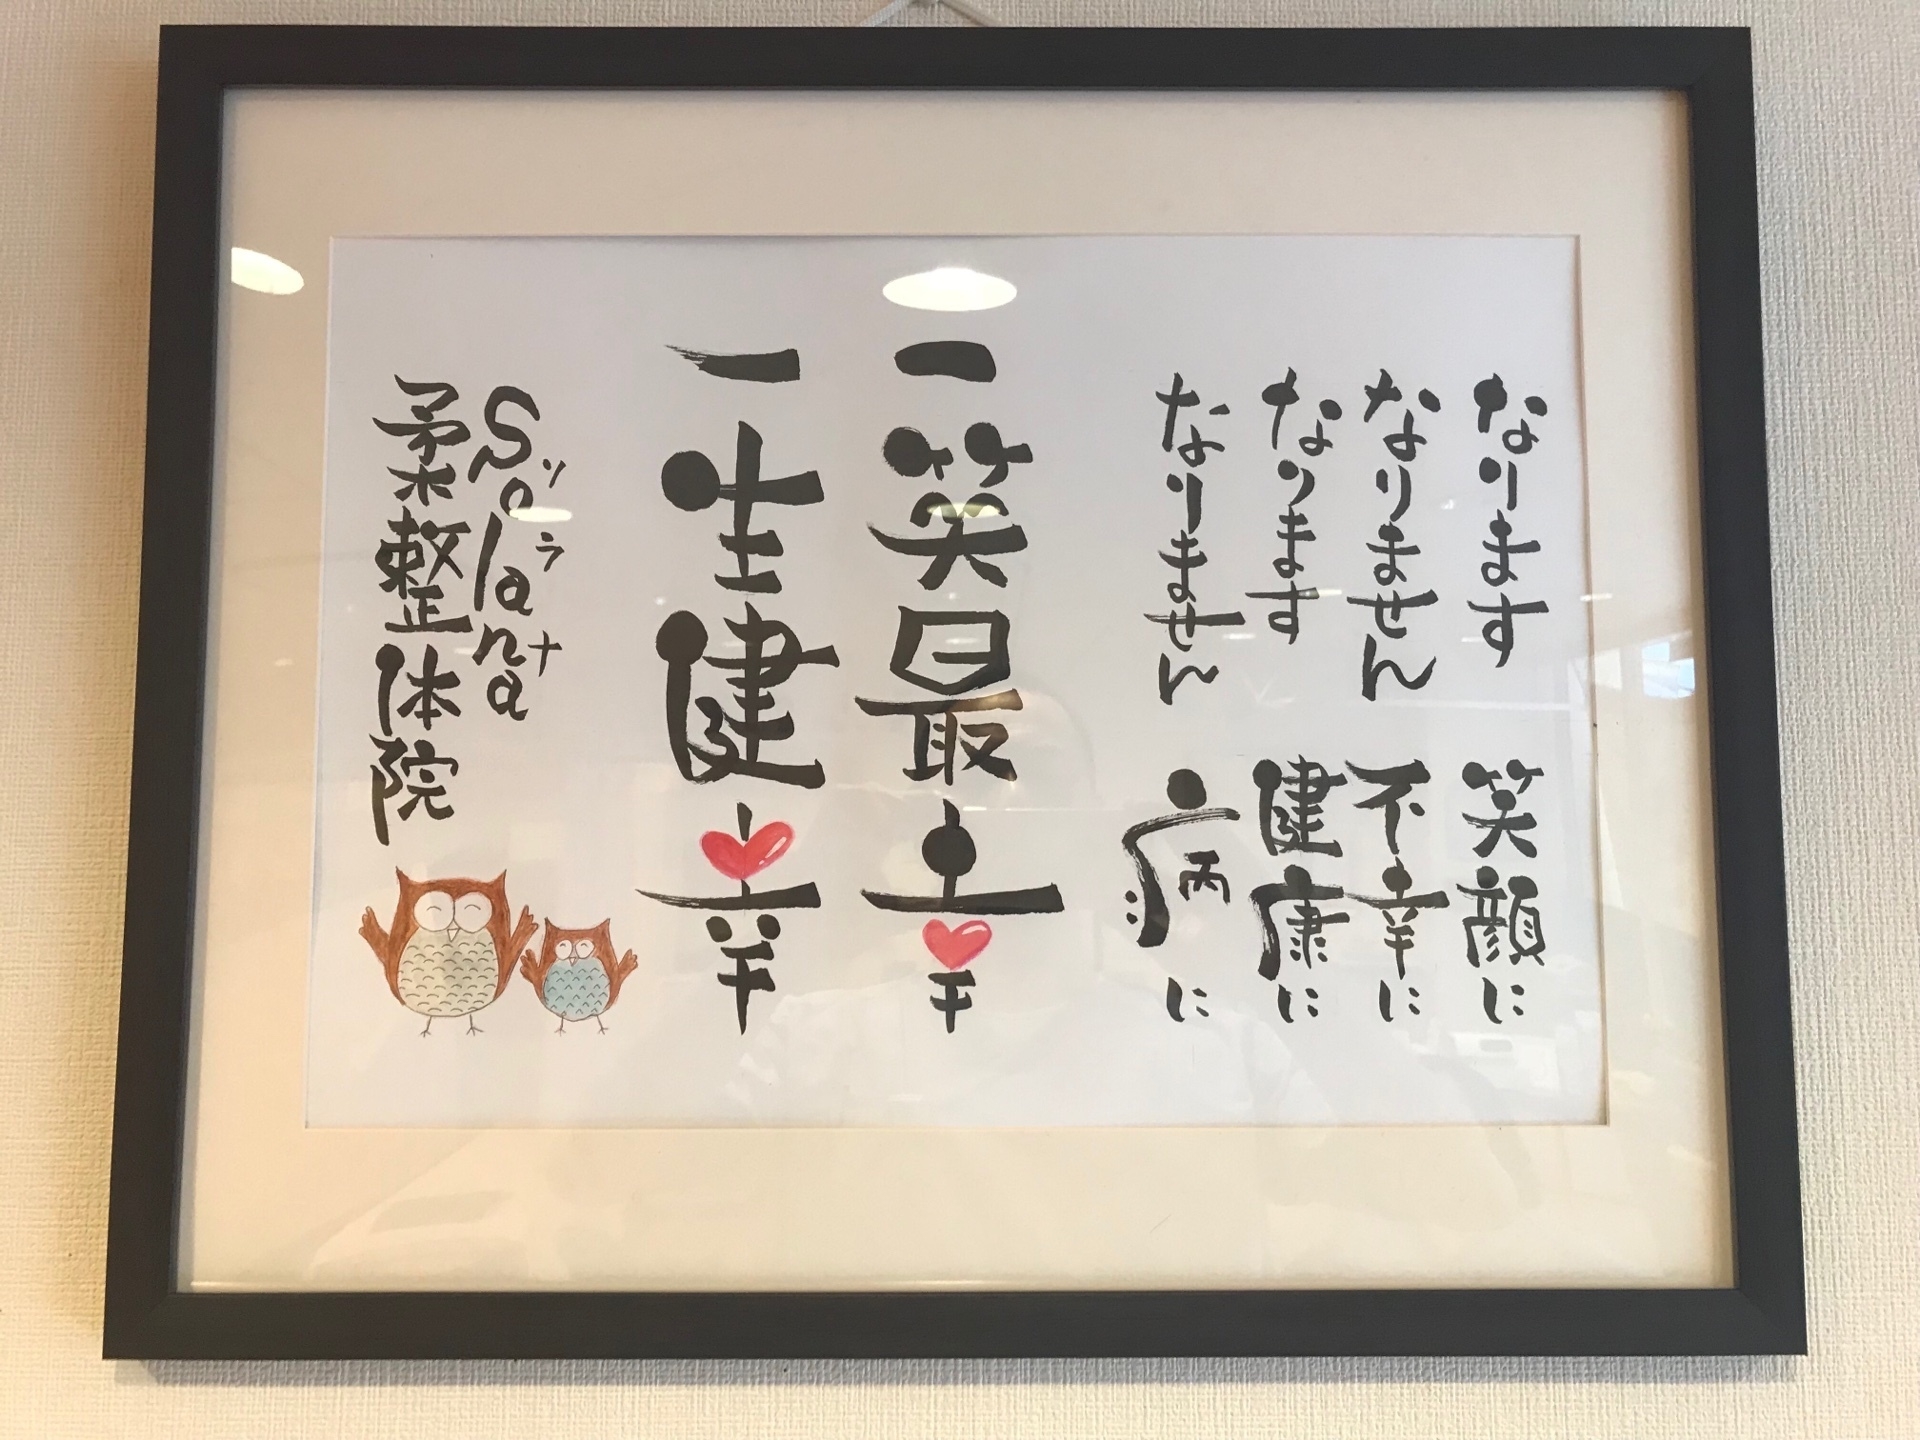 なります　笑顔に
なりません　不幸に
なります　健康に
なりません　病に
一笑最幸
一生健幸
Solana
ソラナ
柔整体院